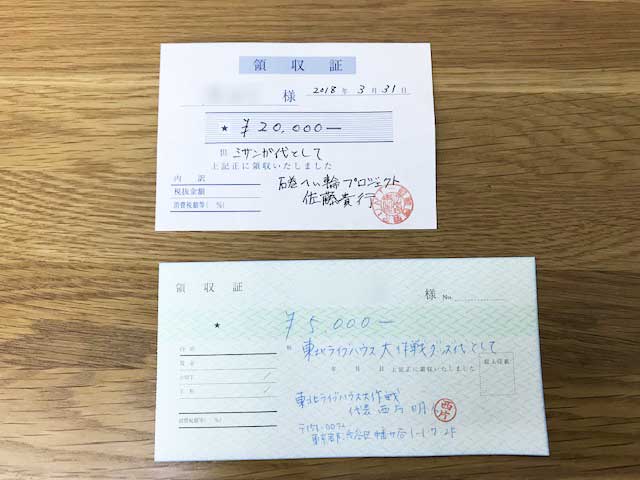 領収証
様 2018年3月31日
★ ¥20,000—
但 ミサンガ代として
上記正に領収いたしました
内訳
税抜金額
消費税額等( %)
プロジェクト
佐藤貴行
領収証
様 No.
★ ¥5,000—
但 東北ライブハウス大作戦グッズ代として
年 月 日 上記正に領収いたしました
収入印紙
内訳
消費税額等( %)
東北ライブハウス大作戦
代表 西片明人
西片
〒151-0072
東京都渋谷区幡ヶ谷1-1-7-2F